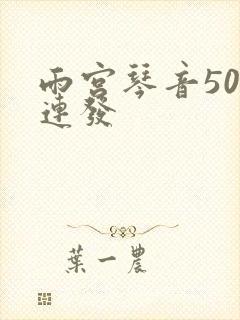 雨宮琴音50
連發
葉一農